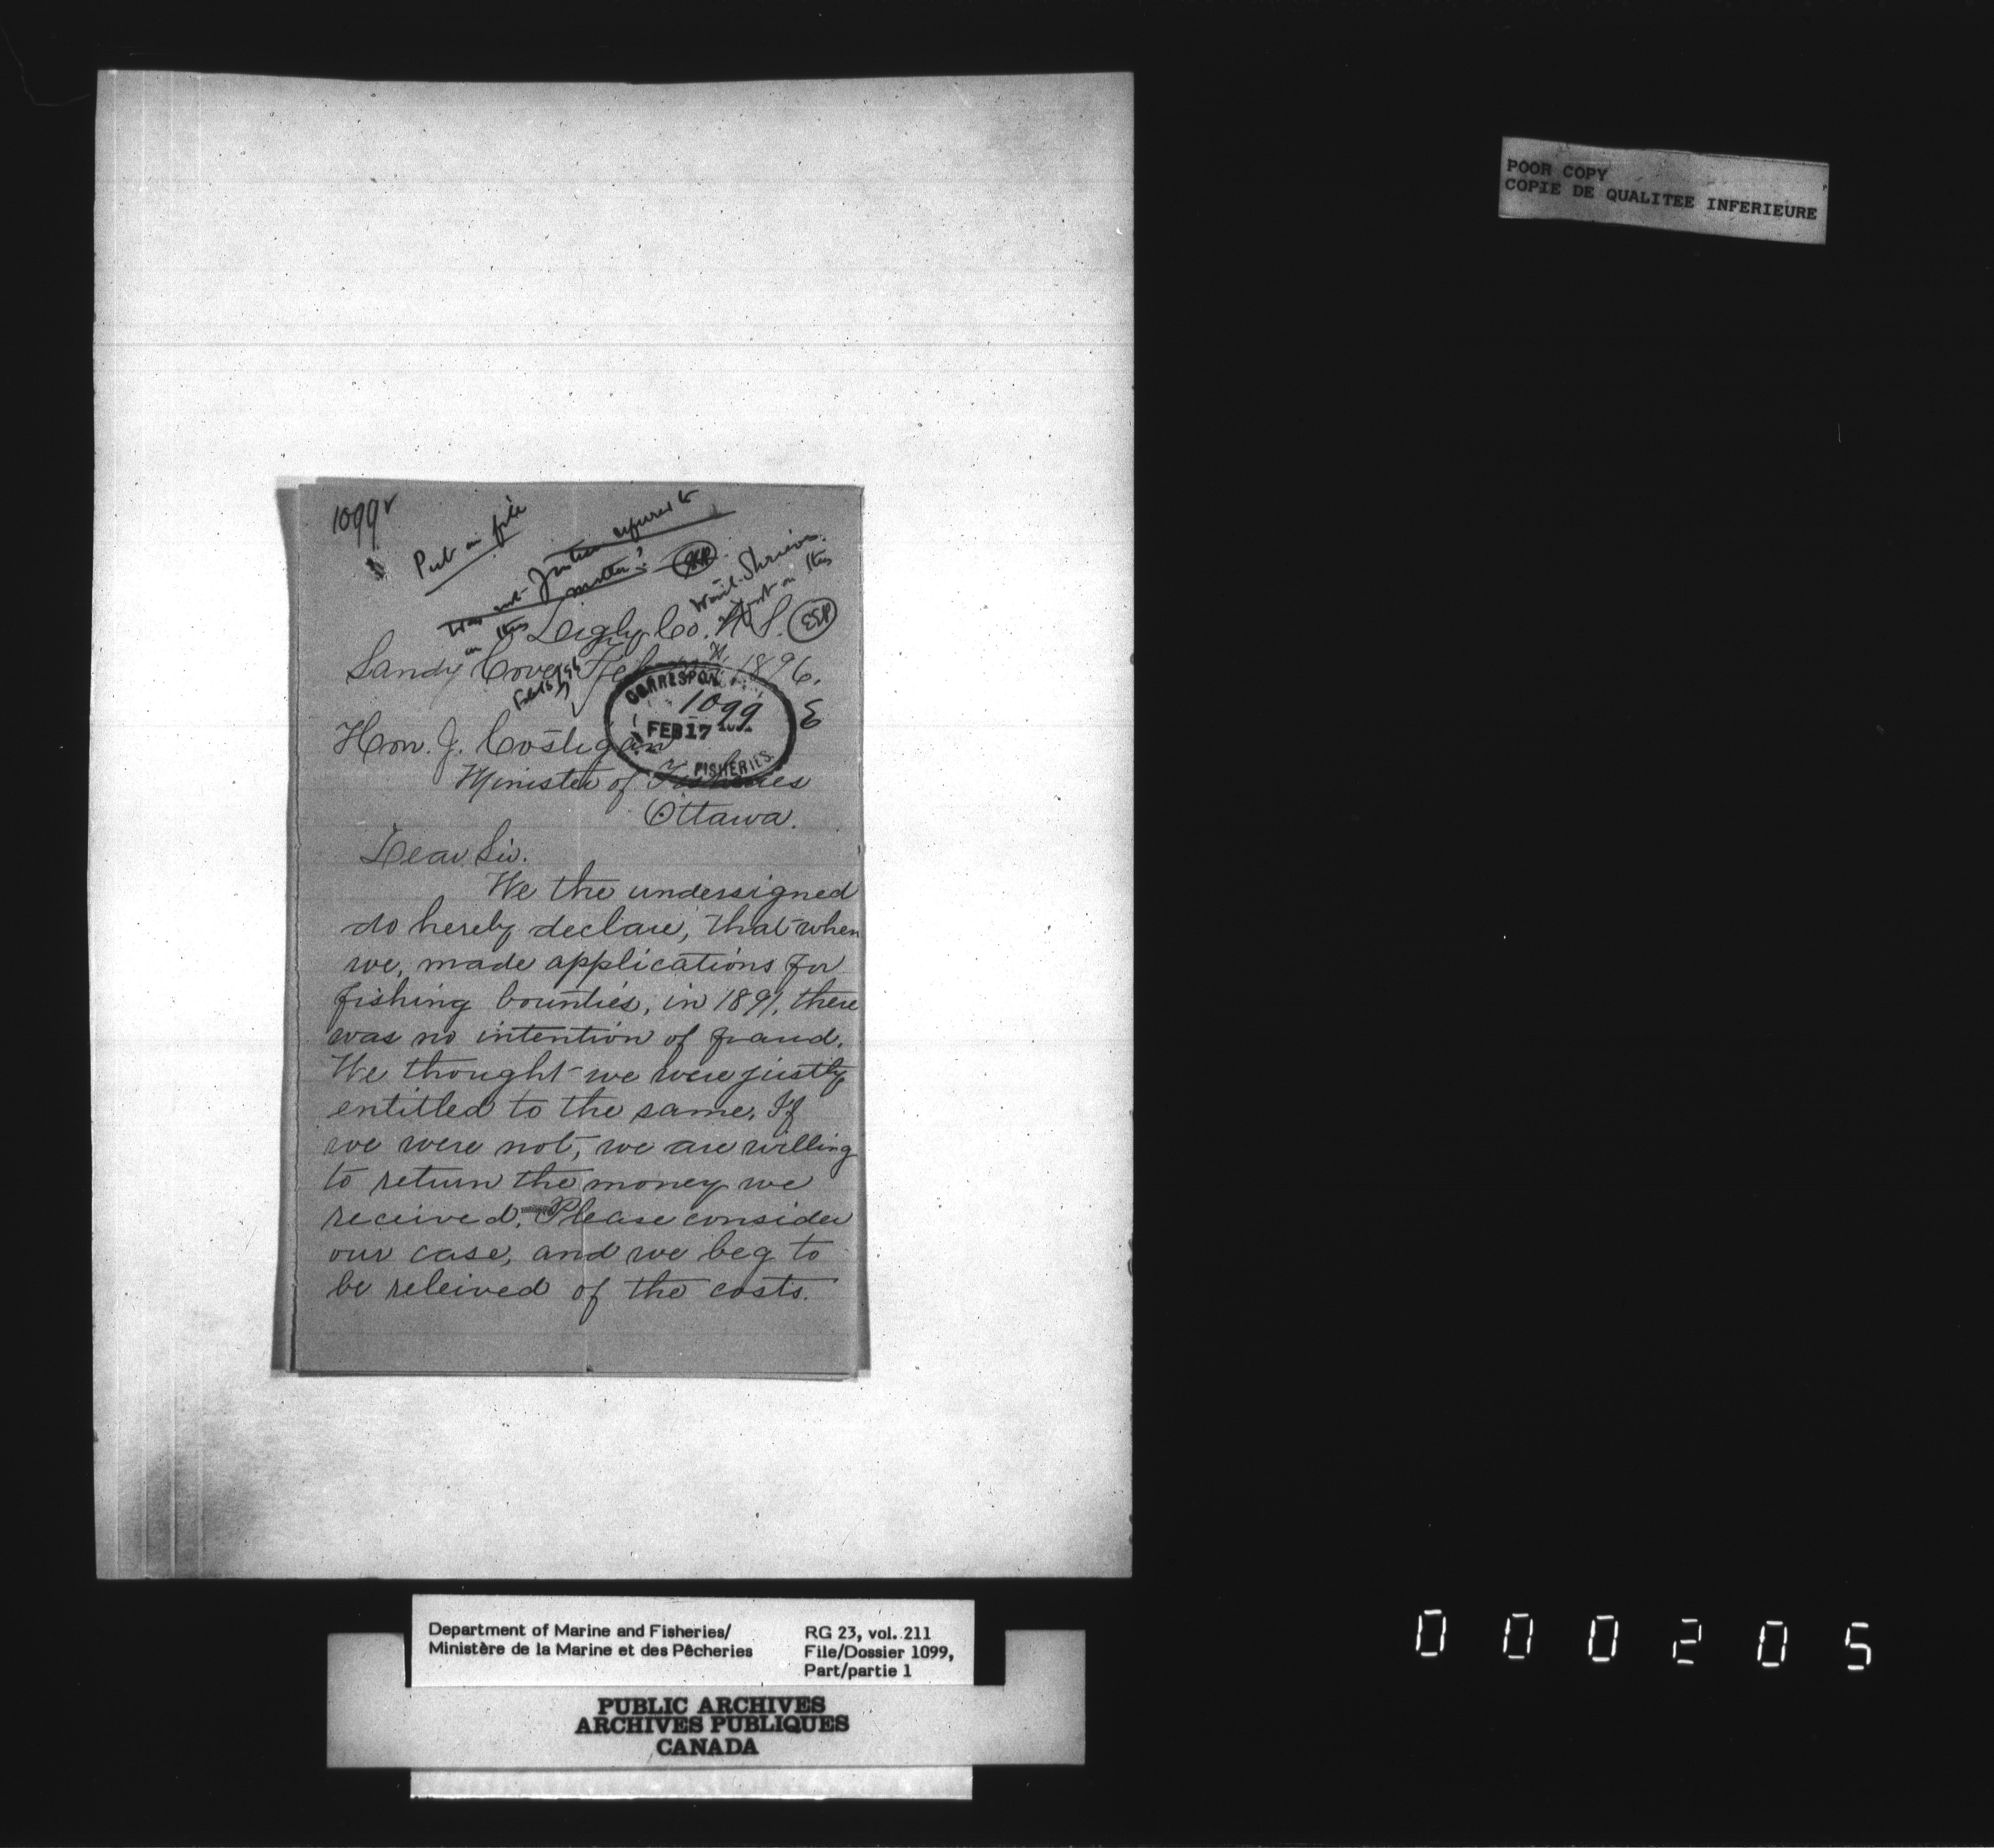 POOR COPY
COPIE DE QUALITEE INFERIEURE
1099
Put on file
Was not Justice referred to
on this matter?
Wait Shrieve
report on this
Digby Co. N.S.
Sandy Cove, Feb 1896.
CORRESPON
1099
FEB 17
FISHERIES
Hon. J. Costigan
Minister of Fisheries
Ottawa.
Dear Sir.
We the undersigned
do hereby declare, that when
we, made applications for
fishing bounties, in 1891, there
was no intention of fraud.
We thought we were justly
entitled to the same. If
we were not, we are willing
to return the money we
received. Please consider
our case, and we beg to
be releived of the costs.
Department of Marine and Fisheries/
Ministère de la Marine et des Pêcheries
RG 23, vol. 211
File/Dossier 1099,
Part/partie 1
PUBLIC ARCHIVES
ARCHIVES PUBLIQUES
CANADA
000205